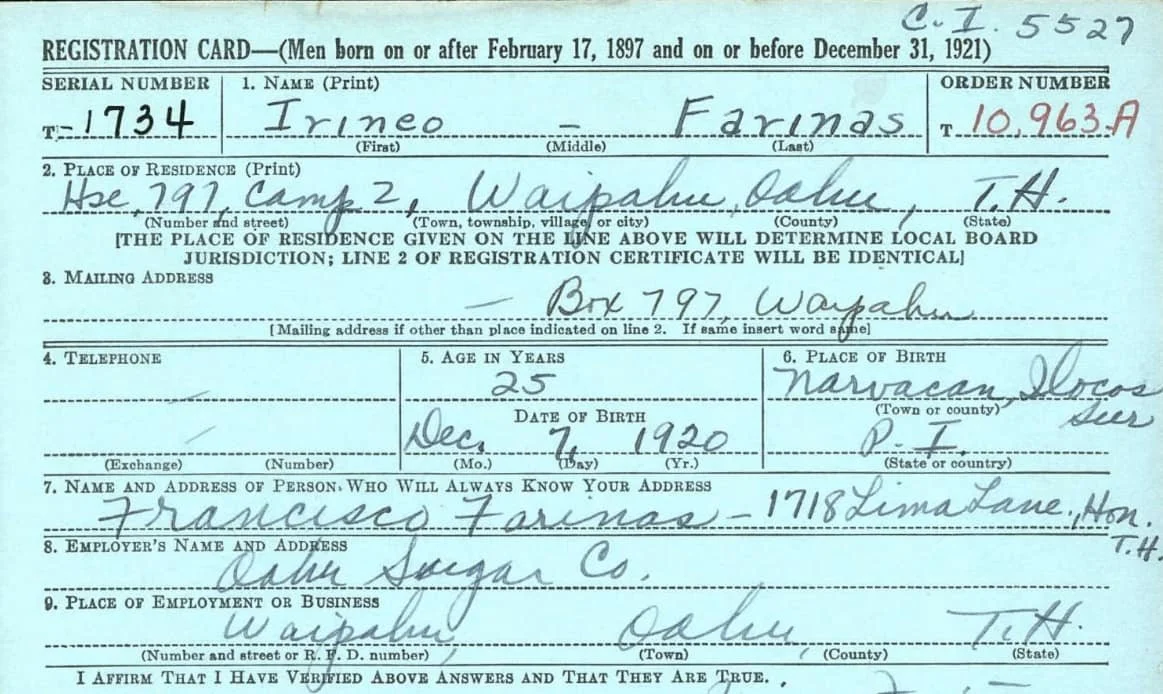 C.I. 5527
REGISTRATION CARD—(Men born on or after February 17, 1897 and on or before December 31, 1921)
SERIAL NUMBER 1. NAME (Print) ORDER NUMBER
T-1734 Irineo - Farinas T 10,963-A
(First) (Middle) (Last)
2. PLACE OF RESIDENCE (Print)
Hse, 797, Camp 2, Waipahu, Oahu, T.H.
(Number and street) (Town, township, village, or city) (County) (State)
[THE PLACE OF RESIDENCE GIVEN ON THE LINE ABOVE WILL DETERMINE LOCAL BOARD
JURISDICTION; LINE 2 OF REGISTRATION CERTIFICATE WILL BE IDENTICAL]
3. MAILING ADDRESS
— Box 797, Waipahu
[Mailing address if other than place indicated on line 2. If same insert word same]
4. TELEPHONE 5. AGE IN YEARS 6. PLACE OF BIRTH
25 Narvacan, Ilocos
DATE OF BIRTH (Town or county) Sur
Dec. 7, 1920 P. I.
(Exchange) (Number) (Mo.) (Day) (Yr.) (State or country)
7. NAME AND ADDRESS OF PERSON WHO WILL ALWAYS KNOW YOUR ADDRESS
Francisco Farinas - 1718 Lima Lane, Hon.
T.H.
8. EMPLOYER'S NAME AND ADDRESS
Oahu Sugar Co.
9. PLACE OF EMPLOYMENT OR BUSINESS
Waipahu, Oahu, T.H.
(Number and street or R. F. D. number) (Town) (County) (State)
I AFFIRM THAT I HAVE VERIFIED ABOVE ANSWERS AND THAT THEY ARE TRUE.